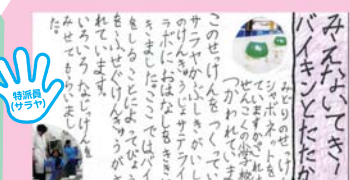 みえないてき
バイキンとたたか
みどりのせっけ
シャボネットを
てますか?それ
ぜんこくの小学校
つかわれています
このせっけんを つくってい
サラヤがふしぎがいし
のけんきゅうじょサテライ
ラボにおはなしをきき
きました。ここではバイ
をしることによってびょう
をふせぐけんきゅうがさ
れています。
いろいろなじっけんを
みせてもらいました
特派員
(サラヤ)